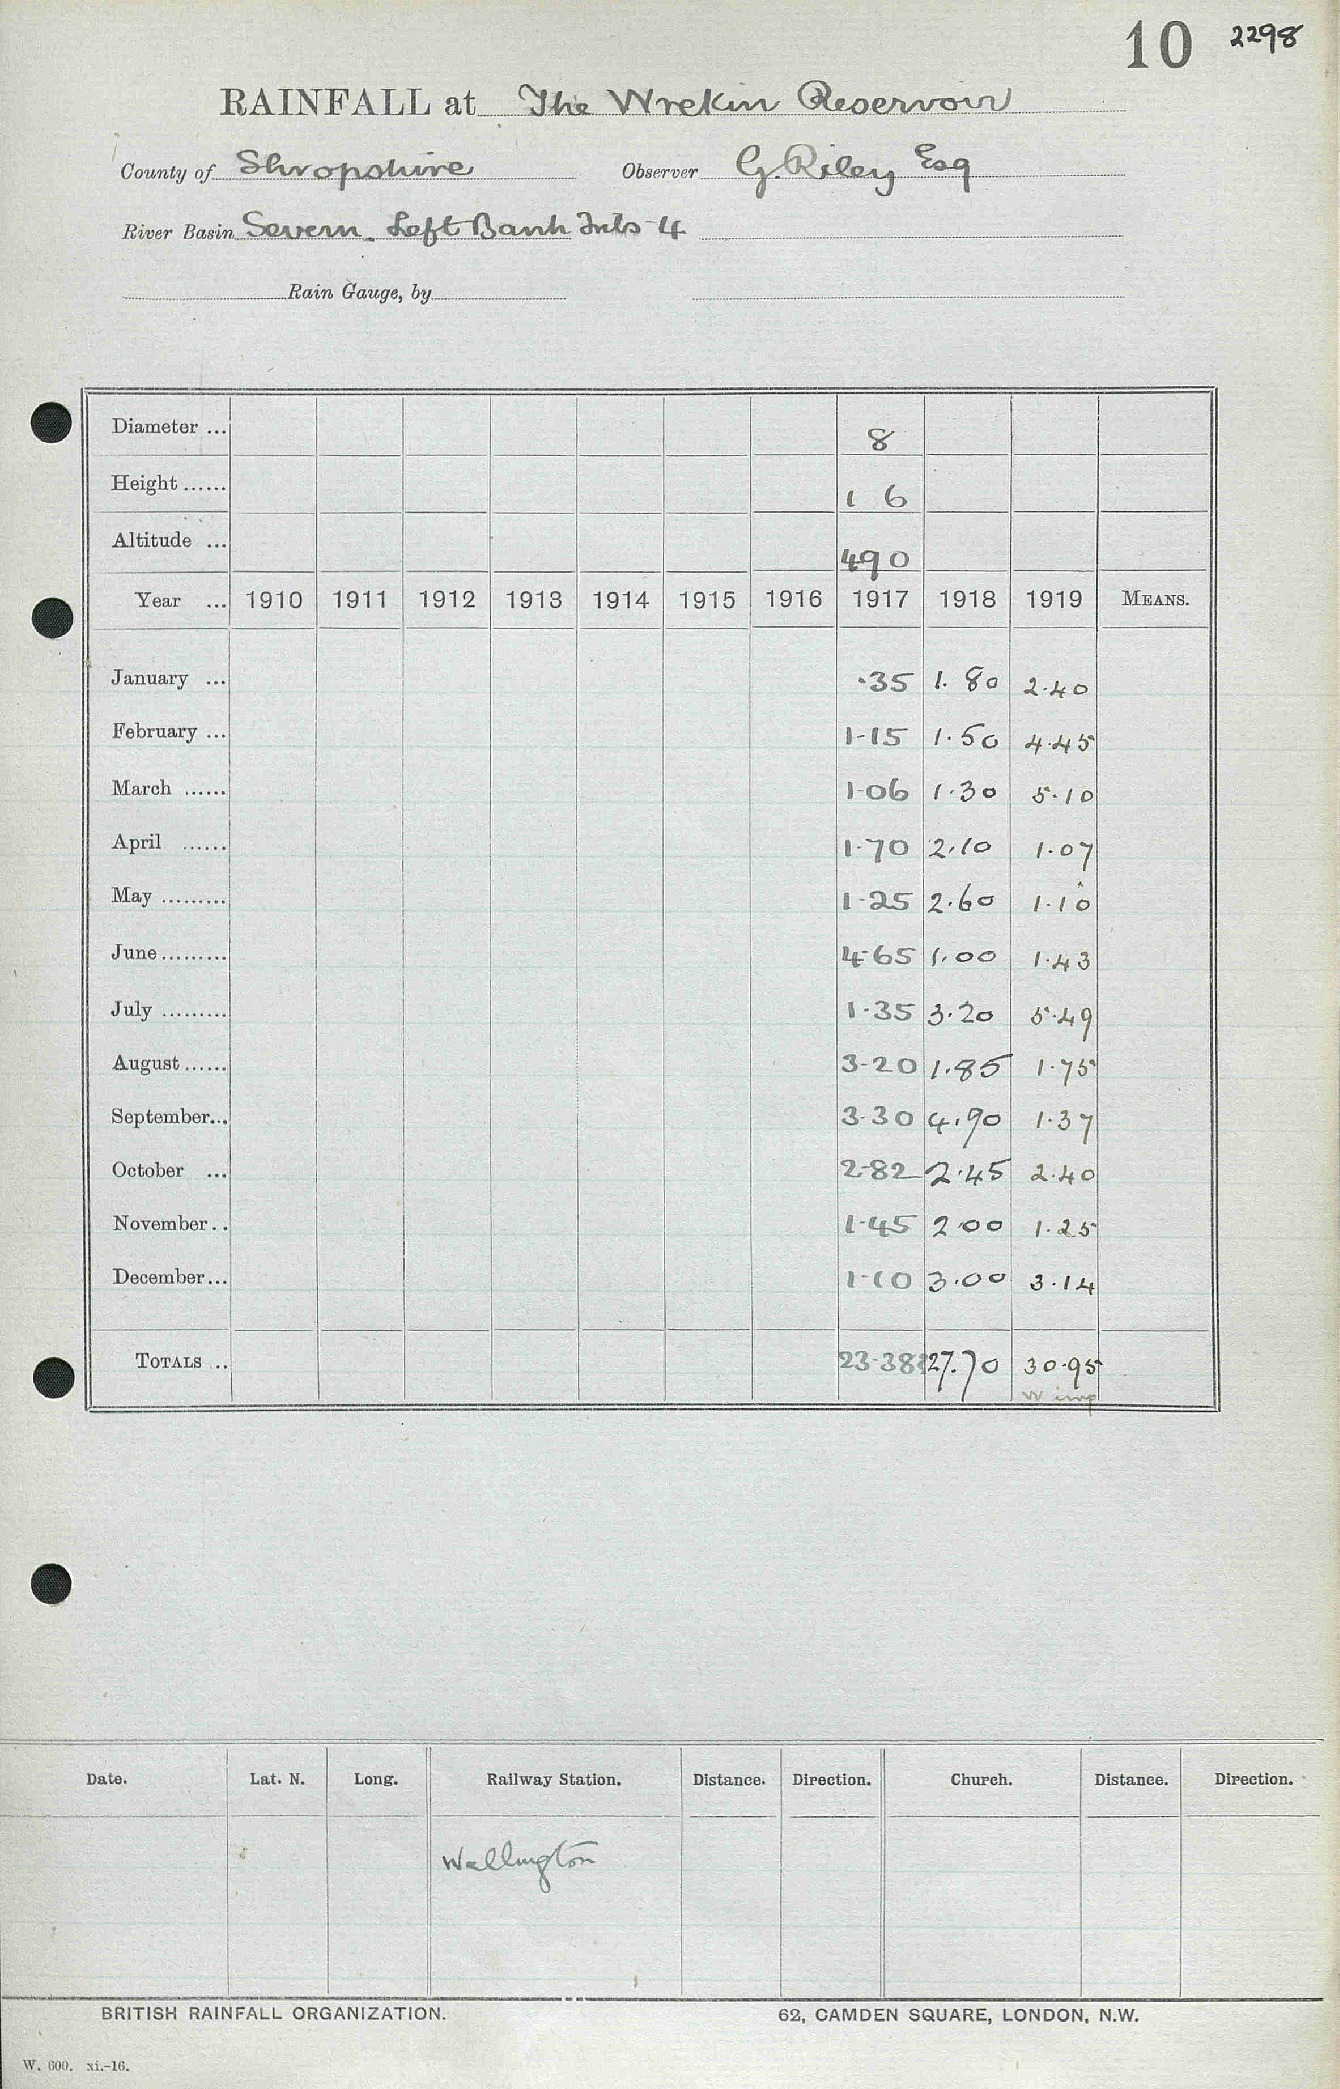 10 2298
RAINFALL at The Wrekin Reservoir
County of Shropshire Observer G. Riley Esq
River Basin Severn - Left Bank Tribs 4
Rain Gauge, by
Diameter ... 8
Height ...... 1 6
Altitude ... 490
Year ... 1910 1911 1912 1913 1914 1915 1916 1917 1918 1919 MEANS.
January ... ·35 1·80 2·40
February ... 1·15 1·50 4·45
March ...... 1·06 1·30 5·10
April ...... 1·70 2·10 1·07
May ......... 1·25 2·60 1·10
June ......... 4·65 1·00 1·43
July ......... 1·35 3·20 5·49
August ...... 3·20 1·85 1·75
September... 3·30 4·90 1·37
October ... 2·82 2·45 2·40
November.. 1·45 2·00 1·25
December... 1·10 3·00 3·14
TOTALS .. 23·38 27·70 30·95
Date. Lat. N. Long. Railway Station. Distance. Direction. Church. Distance. Direction.
Wellington
BRITISH RAINFALL ORGANIZATION. 62, CAMDEN SQUARE, LONDON, N.W.
W. 600. xi.-16.